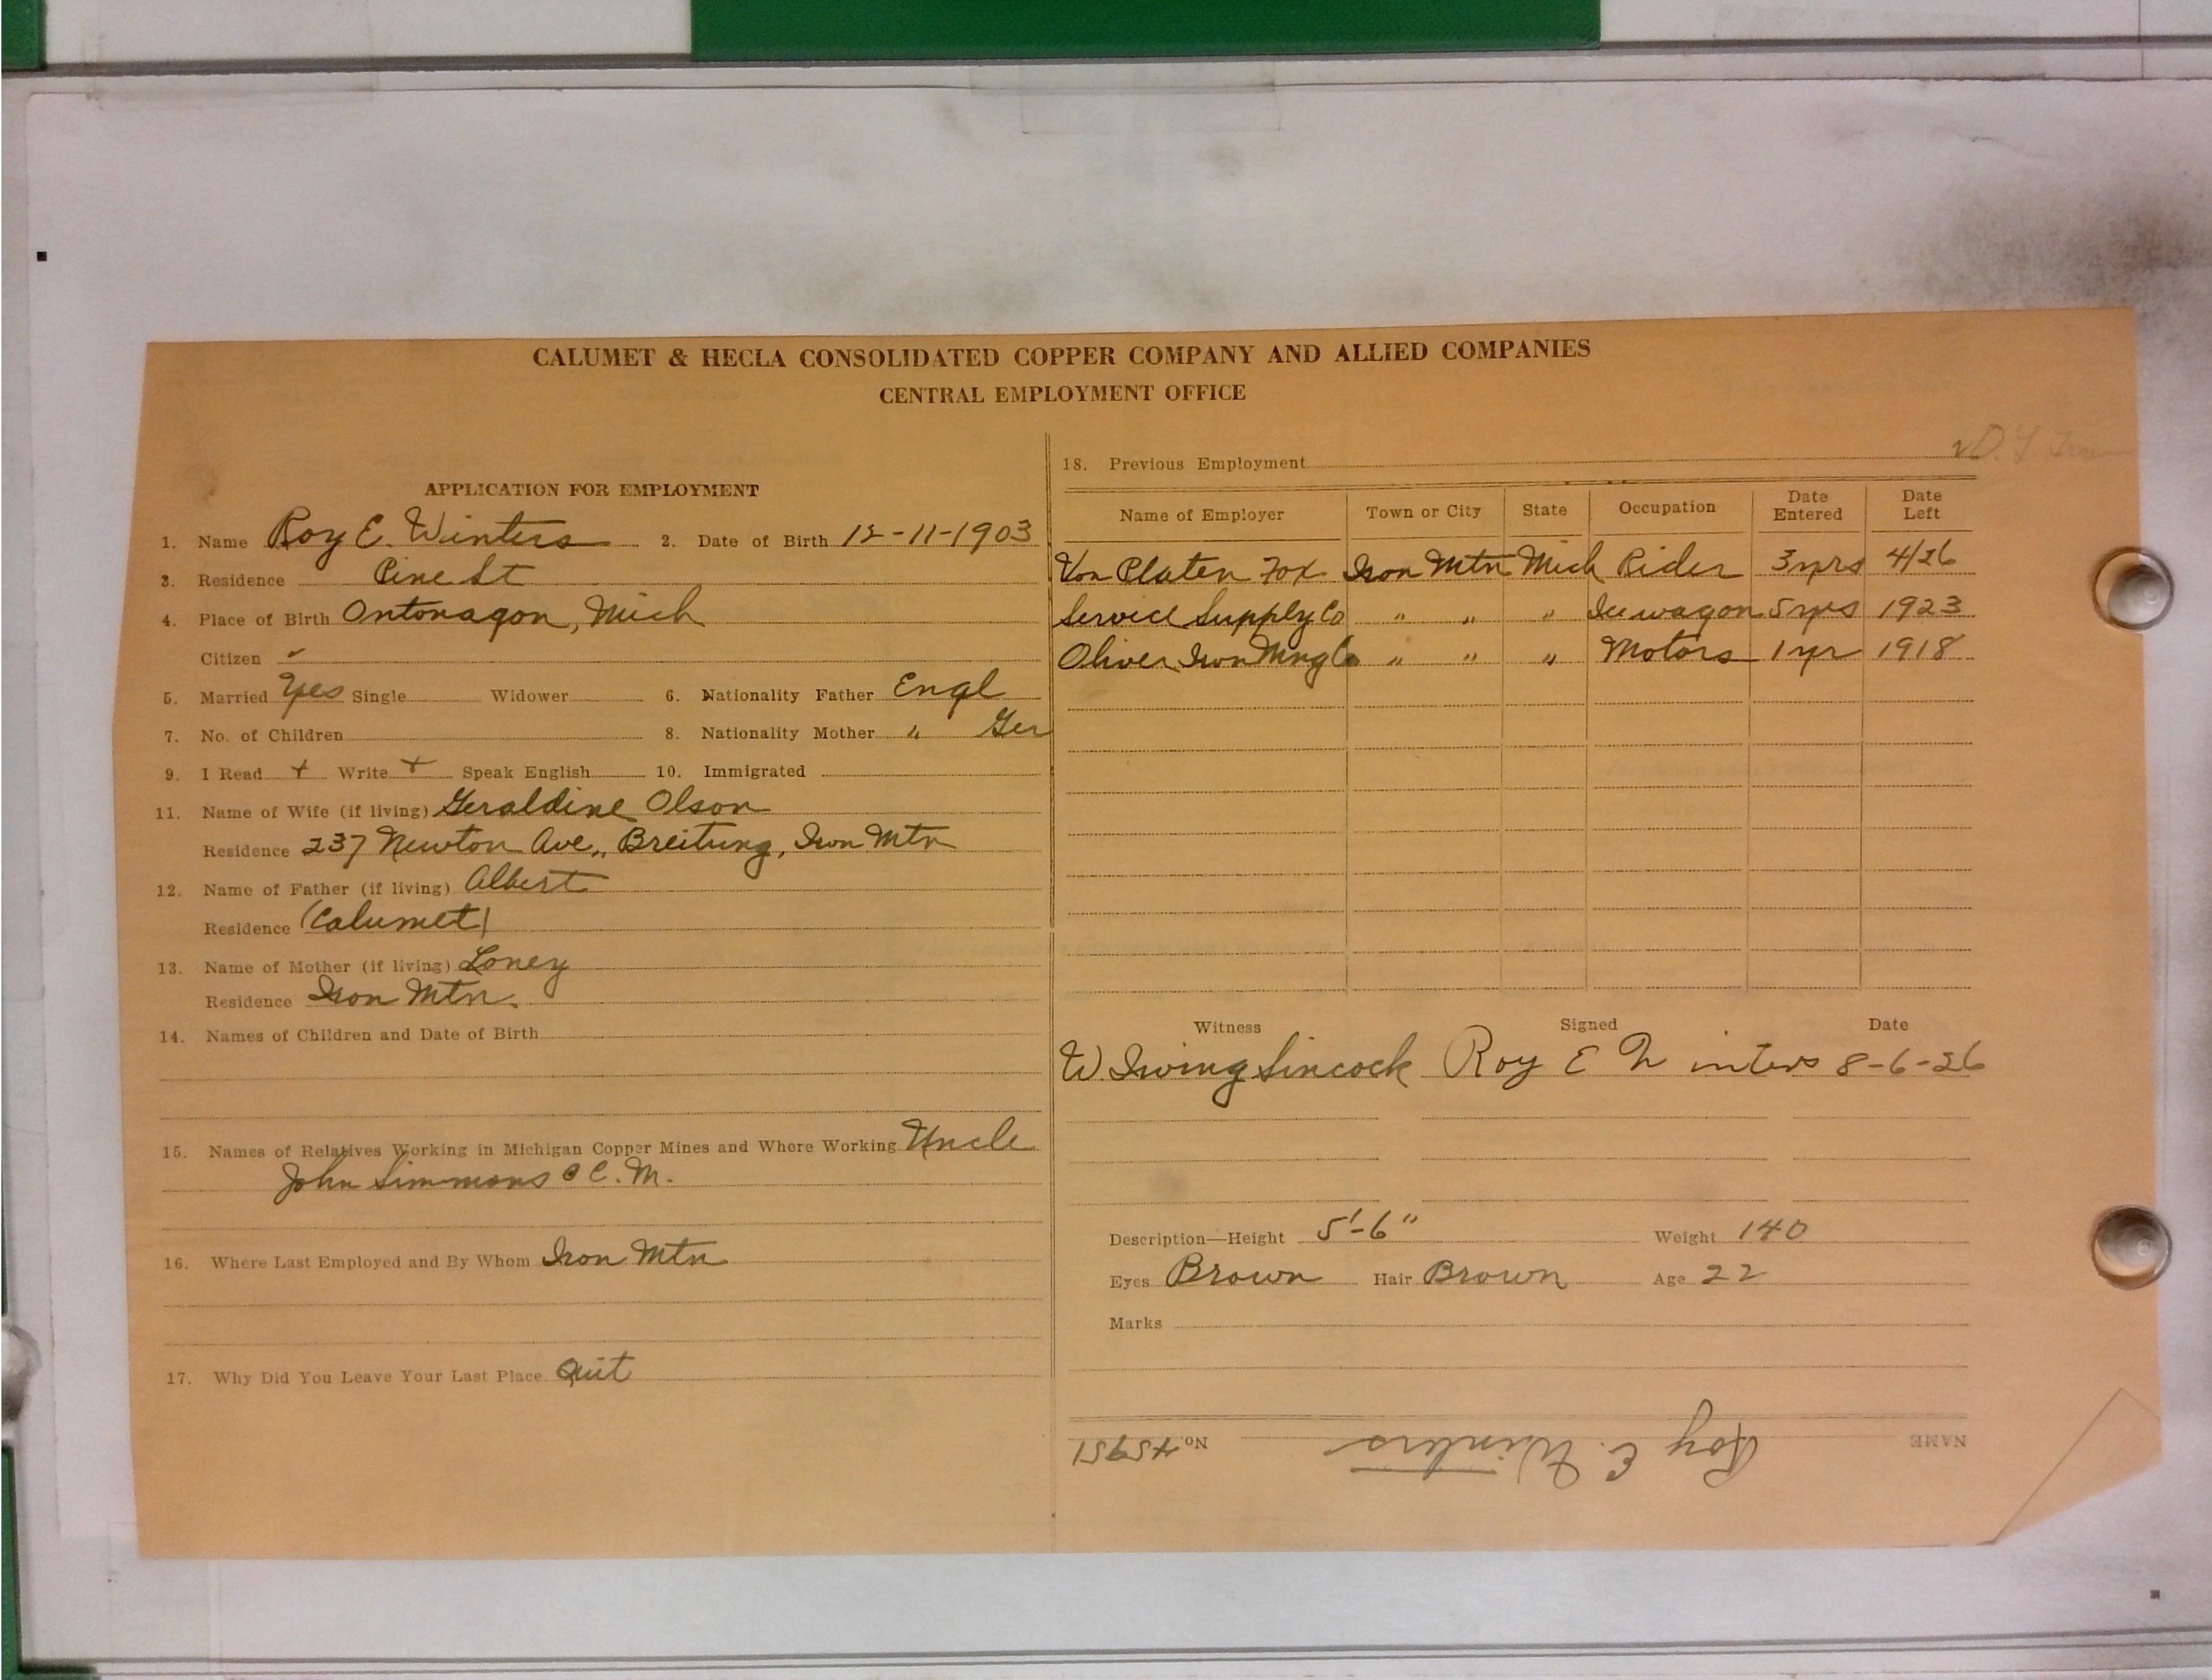 CALUMET & HECLA CONSOLIDATED COPPER COMPANY AND ALLIED COMPANIES
CENTRAL EMPLOYMENT OFFICE
APPLICATION FOR EMPLOYMENT
1. Name Roy E. Winters 2. Date of Birth 12-11-1903
3. Residence Pine St
4. Place of Birth Ontonagon, Mich
Citizen ✓
5. Married Yes Single Widower 6. Nationality Father Engl
7. No. of Children 8. Nationality Mother " Ger
9. I Read + Write + Speak English 10. Immigrated
11. Name of Wife (if living) Geraldine Olson
Residence 237 Newton Ave., Breitung, Iron Mtn
12. Name of Father (if living) Albert
Residence (Calumet)
13. Name of Mother (if living) Loney
Residence Iron Mtn.
14. Names of Children and Date of Birth
15. Names of Relatives Working in Michigan Copper Mines and Where Working Uncle
John Simmons C.M.
16. Where Last Employed and By Whom Iron Mtn
17. Why Did You Leave Your Last Place Quit
18. Previous Employment
Name of Employer Town or City State Occupation Date Entered Date Left
Von Platen Fox Iron Mtn Mich Rider 3 yrs 4/26
Service Supply Co " " " Ice wagon 5 yrs 1923
Oliver Iron Mng Co " " " Motors 1 yr 1918
Witness Signed Date
W. Irving Sincock Roy E Winters 8-6-26
Description—Height 5'-6" Weight 140
Eyes Brown Hair Brown Age 22
Marks
NAME Roy E. Winters No. 45951